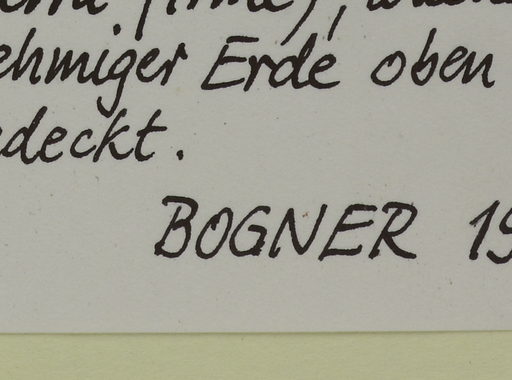 ehmiger Erde oben
deckt.
BOGNER 19